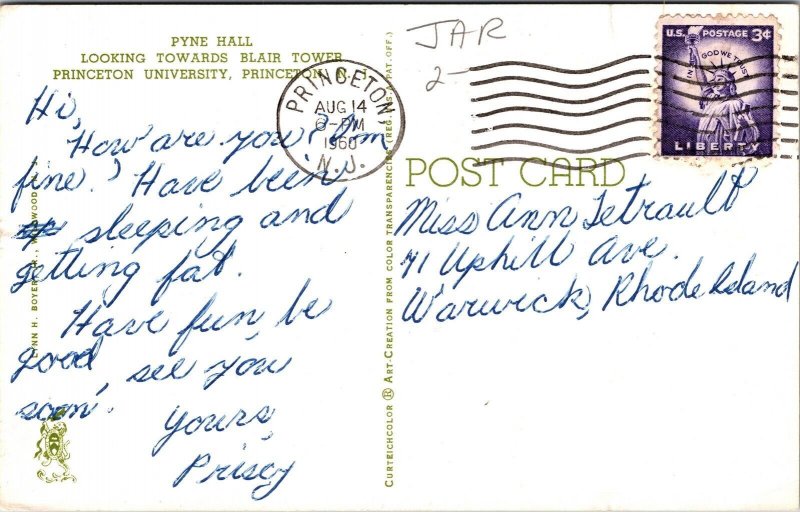 PYNE HALL
LOOKING TOWARDS BLAIR TOWER
PRINCETON UNIVERSITY, PRINCETON, N.J.
Hi,
How are you? I'm
fine. Have been
sleeping and
getting fat.
Have fun, be
good, see you
soon.
Yours,
Priscy
JAR
2-
PRINCETON
AUG 14
6-PM
1960
N.J.
U.S. POSTAGE 3¢
IN GOD WE TRUST
LIBERTY
POST CARD
Miss Ann Tetrault
71 Uphill Ave.
Warwick, Rhode Island
CURTEICHCOLOR ® ART-CREATION FROM COLOR TRANSPARENCIES (REG. U.S.A. PAT. OFF.)
LYNN H. BOYER, JR., WILDWOOD